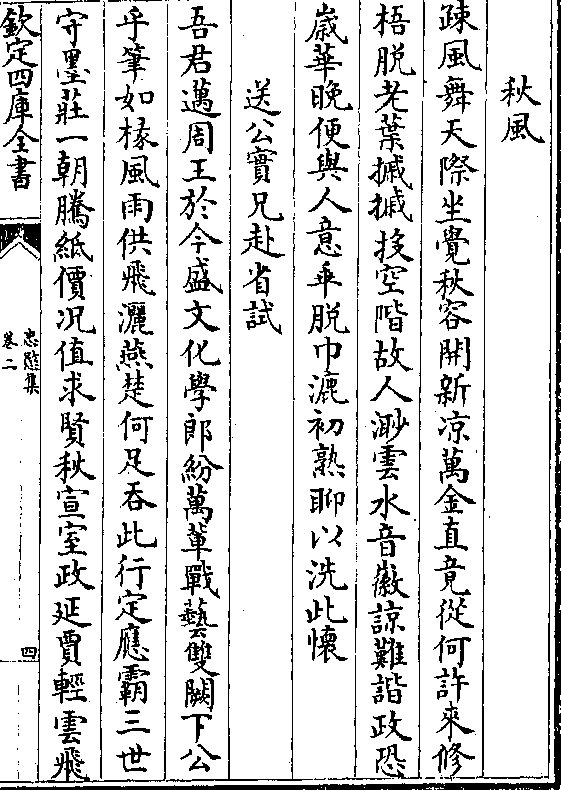 秋風
疎風舞天際坐覺秋容開新凉萬金直竟從何許來修
梧脱老葉摵摵投空階故人渺雲水音徽諒難諧政恐
嵗華晚便與人意乖脱巾漉初熟聊以洗此懷
送公實兄赴省試
吾君邁周王於今盛文化學郎紛萬軰戰藝雙闕下公
乎筆如椽風雨供飛灑燕楚何足吞此行定應霸三世
守墨莊一朝騰紙價况值求賢秋宣室政延賈輕雲飛
欽定四庫全書
忠愍集
卷二
四